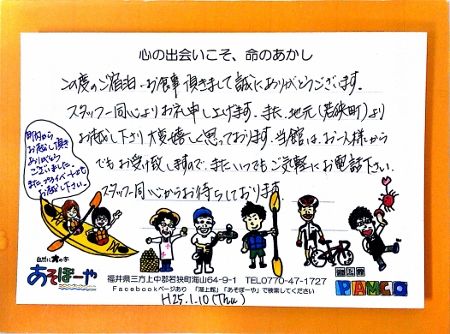 心の出会いこそ、命のあかし
この度のご宿泊、お食事頂きまして誠にありがとうございます。
スタッフ一同心よりお礼申し上げます。また、地元(若狭町)より
お越し下さり大変嬉しく思っております。当館は、お一人様から
でもお受け致しますので、またいつでもご気軽にお電話下さい。
スタッフ一同心からお待ちしております
町内から
お越し頂き
ありがとう
ございました。
また、プライベートでも
お越し下さい。
自然に寳の季
あそぼーや
湖上館
PAMCO
福井県三方上中郡若狭町海山64-9-1 TEL0770-47-1727
Facebookページあり 「湖上館」「あそぼーや」で検索してください
H25.1.10(Thu)